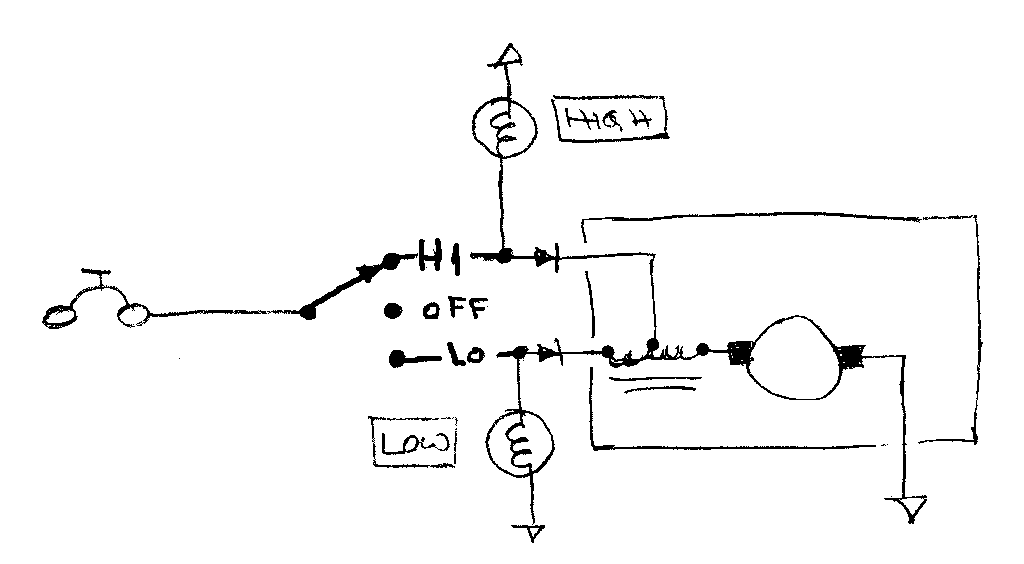 HIGH
HI
OFF
LO
LOW